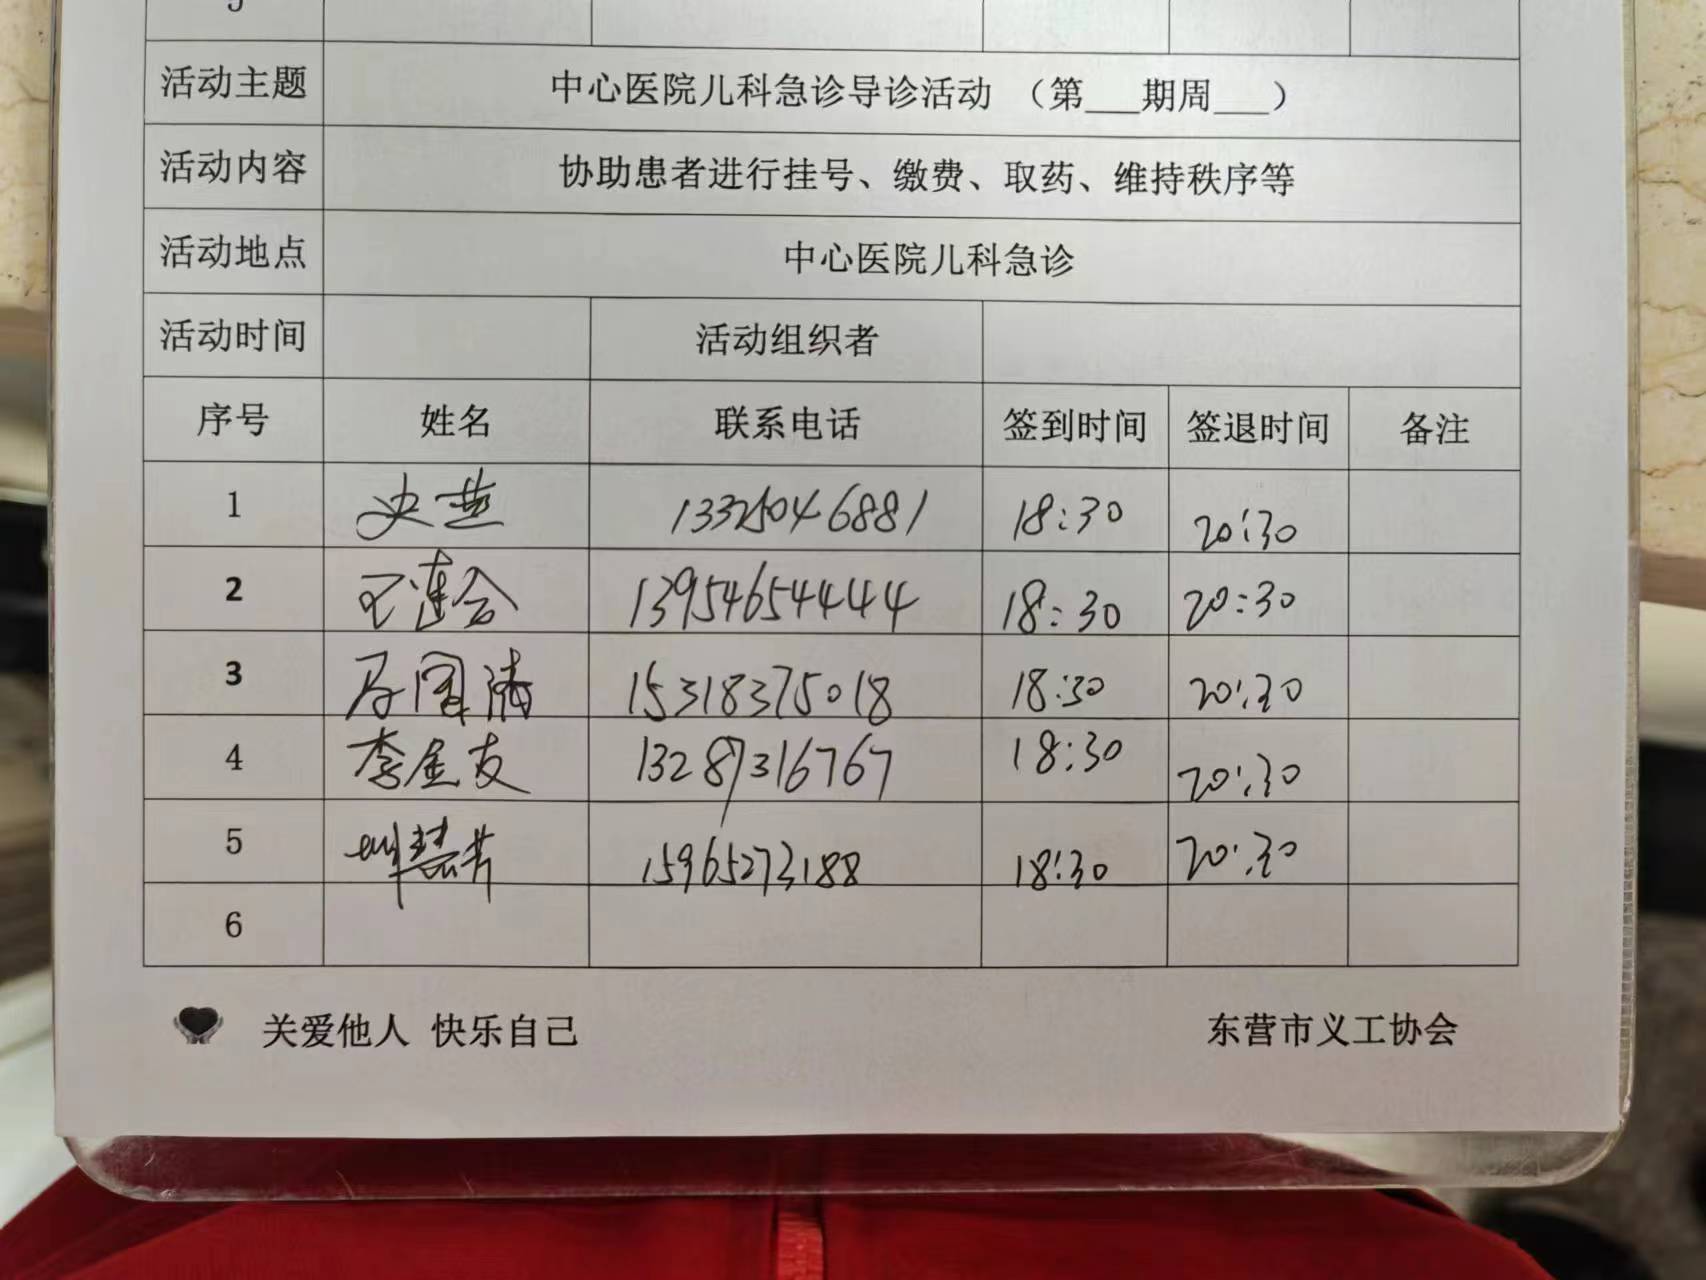 活动主题 中心医院儿科急诊导诊活动 （第___期周___）
活动内容 协助患者进行挂号、缴费、取药、维持秩序等
活动地点 中心医院儿科急诊
活动时间 活动组织者
序号 姓名 联系电话 签到时间 签退时间 备注
1 史燕 13325046881 18:30 20:30
2 王莲合 13954654444 18:30 20:30
3 15318375018 18:30 20:30
4 李金友 13287316767 18:30 20:30
5 慧芳 15965273188 18:30 20:30
6
关爱他人 快乐自己 东营市义工协会